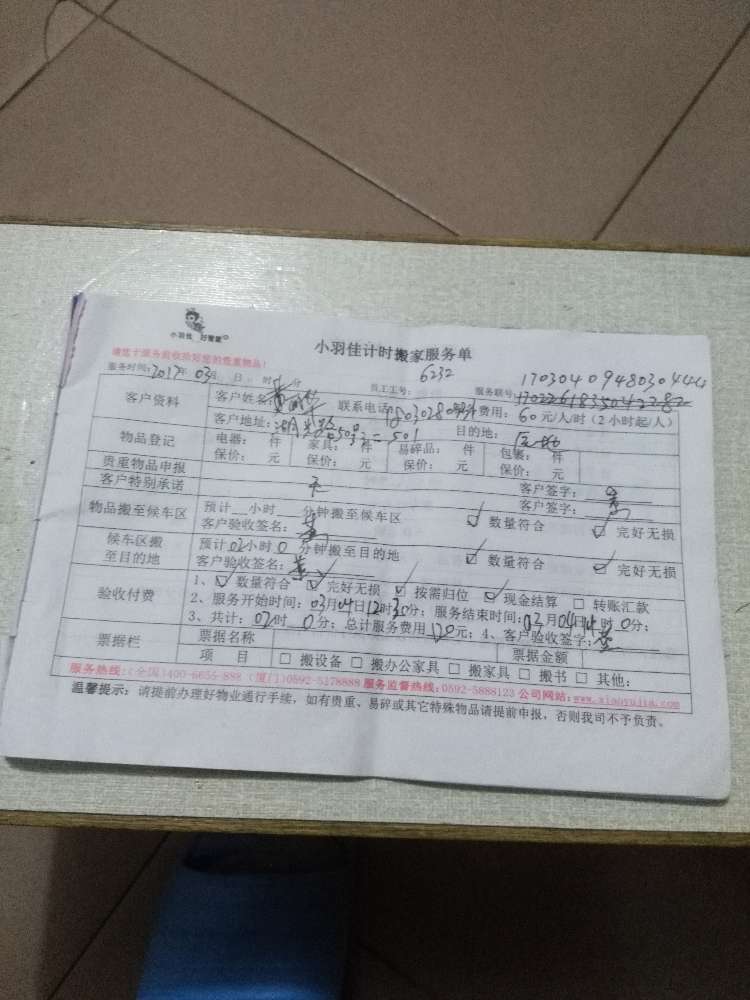 小羽佳 好管家
小羽佳计时搬家服务单
请您于服务前收拾好您的贵重物品!
服务时间:2017年03月 日 时 分 员工工号: 6232 服务联号: 170304094803044
客户资料 客户姓名: 联系电话: 费用: 60元/人/时(2小时起/人)
客户地址: 目的地:
物品登记 电器: 件 家具: 件 易碎品: 件 包裹: 件
保价: 元 保价: 元 保价: 元 保价: 元
贵重物品申报 无 客户签字:
客户特别承诺 客户签字:
物品搬至候车区 预计 小时 分钟搬至候车区 数量符合 完好无损
客户验收签名:
候车区搬至目的地 预计02小时0分钟搬至目的地 数量符合 完好无损
客户验收签名:
验收付费 1、 数量符合 完好无损 按需归位 现金结算 转账汇款
2、服务开始时间:03月04日12时30分; 服务结束时间:03月04日14时30分;
3、共计:02时0分; 总计服务费用120元; 4、客户验收签字:
票据栏 票据名称 票据金额
项 目 搬设备 搬办公家具 搬家具 搬书 其他:
服务热线:(全国)400-6655-888 (厦门)0592-5178888 服务监督热线:0592-5888123 公司网站:www.xiaoyujia.com
温馨提示: 请提前办理好物业通行手续, 如有贵重、易碎或其它特殊物品请提前申报, 否则我司不予负责。